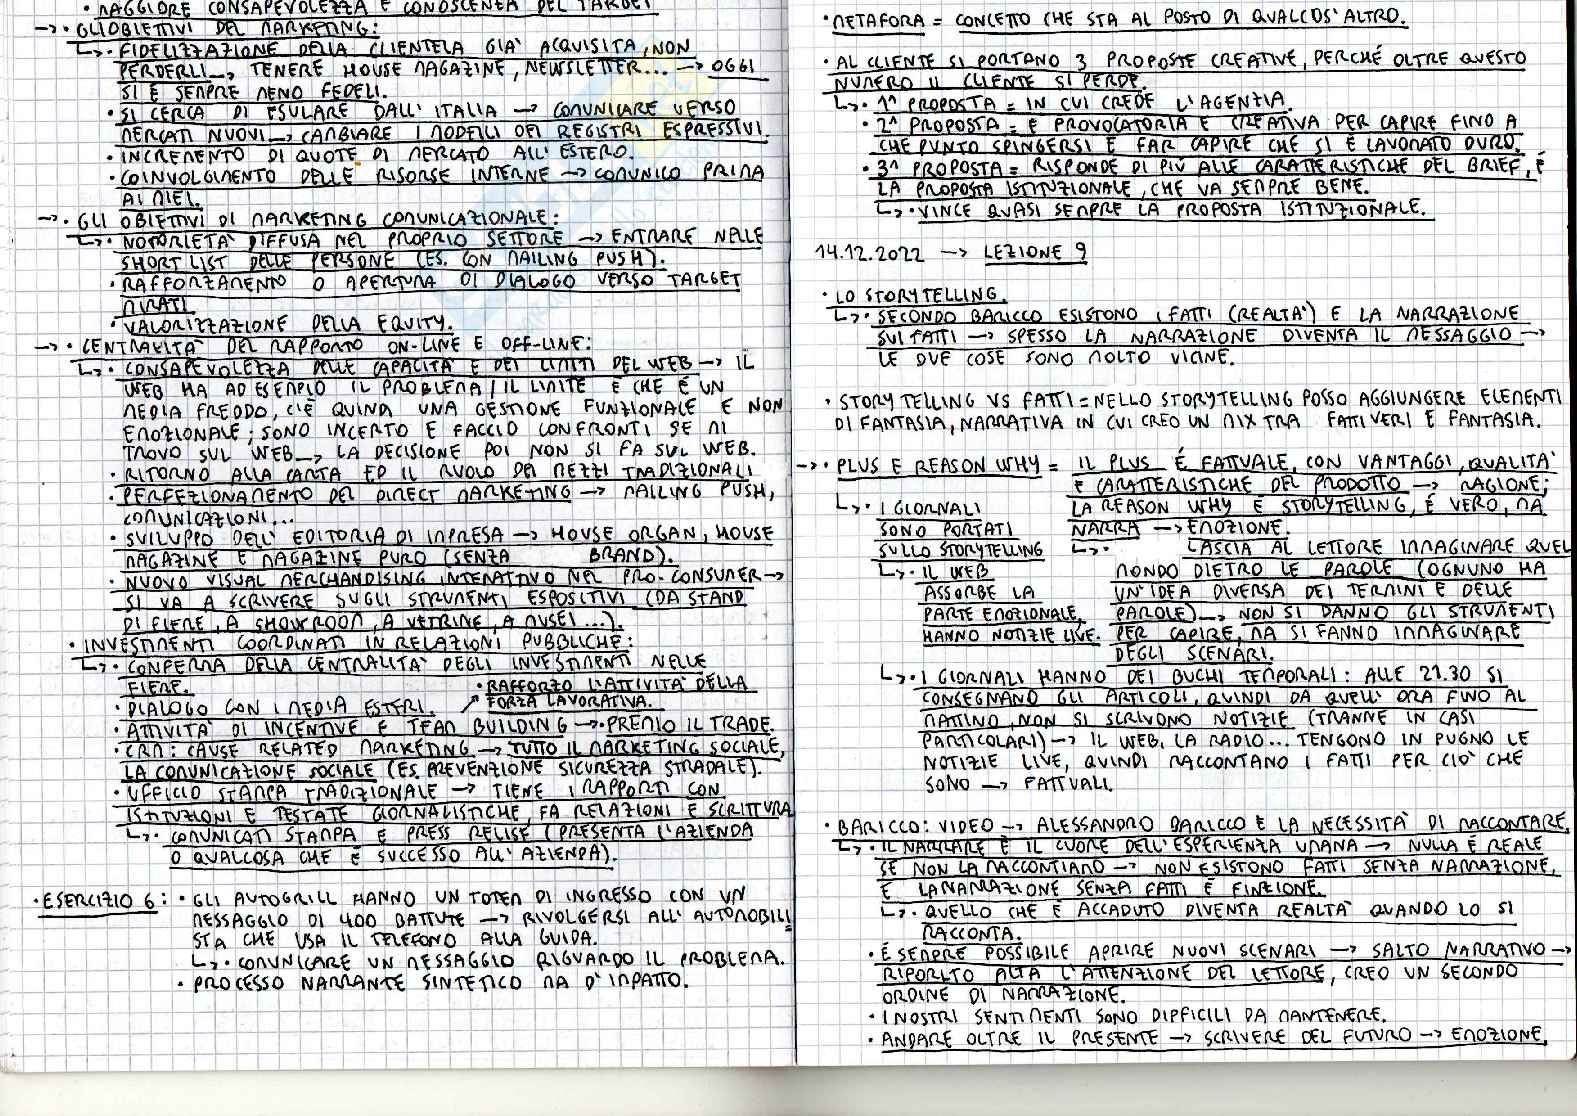 · MAGGIORE CONSAPEVOLEZZA E CONOSCENZA DEL TARGET
→· GLI OBIETTIVI DEL MARKETING:
↳· FIDELIZZAZIONE DELLA CLIENTELA GIA' ACQUISITA, NON
PERDERLI → TENERE HOUSE MAGAZINE, NEWSLETTER... → OGGI
SI È SEMPRE MENO FEDELI.
· SI CERCA DI ESULARE DALL'ITALIA → COMUNICARE VERSO
MERCATI NUOVI → CAMBIARE I MODELLI DEI REGISTRI ESPRESSIVI.
· INCREMENTO DI QUOTE DI MERCATO ALL'ESTERO.
· COINVOLGIMENTO DELLE RISORSE INTERNE → COMUNICO PRIMA
AI MIEI.
→· GLI OBIETTIVI DI MARKETING COMUNICAZIONALE:
↳· NOTORIETA' DIFFUSA NEL PROPRIO SETTORE → ENTRARE NELLE
SHORT LIST DELLE PERSONE (ES. CON MAILING PUSH).
· RAFFORZAMENTO O APERTURA DI DIALOGO VERSO TARGET
MIRATI.
· VALORIZZAZIONE DELLA EQUITY.
→· CENTRALITA' DEL RAPPORTO ON-LINE E OFF-LINE:
↳· CONSAPEVOLEZZA DELLE CAPACITA' E DEI LIMITI DEL WEB → IL
WEB HA AD ESEMPIO IL PROBLEMA / IL LIMITE È CHE È UN
MEDIA FREDDO, C'È QUINDI UNA GESTIONE FUNZIONALE E NON
EMOZIONALE; SONO INCERTO E FACCIO CONFRONTI SE MI
TROVO SUL WEB → LA DECISIONE POI NON SI FA SUL WEB.
· RITORNO ALLA CARTA ED IL RUOLO DEI MEZZI TRADIZIONALI
· PERFEZIONAMENTO DEL DIRECT MARKETING → MAILING PUSH,
COMUNICAZIONI...
· SVILUPPO DELL'EDITORIA DI IMPRESA → HOUSE ORGAN, HOUSE
MAGAZINE E MAGAZINE PURO (SENZA BRAND).
· NUOVO VISUAL MERCHANDISING INTERATTIVO NEL PRO-CONSUMER →
SI VA A SCRIVERE SUGLI STRUMENTI ESPOSITIVI (DA STAND
DI FIERE, A SHOWROOM, A VETRINE, A MUSEI...).
· INVESTIMENTI COORDINATI IN RELAZIONI PUBBLICHE:
↳· CONFERMA DELLA CENTRALITA' DEGLI INVESTIMENTI NELLE
FIERE.
· RAFFORZO L'ATTIVITA' DELLA
FORZA LAVORATIVA.
· DIALOGO CON I MEDIA ESTERI.
· ATTIVITA' DI INCENTIVE E TEAM BUILDING → PREMIO IL TRADE.
· CRM: CAUSE RELATED MARKETING → TUTTO IL MARKETING SOCIALE,
LA COMUNICAZIONE SOCIALE (ES. PREVENZIONE SICUREZZA STRADALE).
· UFFICIO STAMPA TRADIZIONALE → TIENE I RAPPORTI CON
ISTITUZIONI E TESTATE GIORNALISTICHE, FA RELAZIONI E SCRITTURA
↳· COMUNICATI STAMPA E PRESS RELISE (PRESENTA L'AZIENDA
O QUALCOSA CHE È SUCCESSO ALL'AZIENDA).
· ESERCIZIO 6: · GLI AUTOGRILL HANNO UN TOTEM DI INGRESSO CON UN
MESSAGGIO DI 400 BATTUTE → RIVOLGERSI ALL'AUTOMOBILI
STA CHE USA IL TELEFONO ALLA GUIDA.
↳· COMUNICARE UN MESSAGGIO RIGUARDO IL PROBLEMA.
· PROCESSO NARRANTE SINTETICO MA D'IMPATTO.
· METAFORA = CONCETTO CHE STA AL POSTO DI QUALCOS'ALTRO.
· AL CLIENTE SI PORTANO 3 PROPOSTE CREATIVE, PERCHÉ OLTRE QUESTO
NUMERO IL CLIENTE SI PERDE.
↳· 1^ PROPOSTA = IN CUI CREDE L'AGENZIA.
· 2^ PROPOSTA = È PROVOCATORIA E CREATIVA PER CAPIRE FINO A
CHE PUNTO SPINGERSI E FAR CAPIRE CHE SI È LAVORATO DURO.
· 3^ PROPOSTA = RISPONDE DI PIÙ ALLE CARATTERISTICHE DEL BRIEF, È
LA PROPOSTA ISTITUZIONALE, CHE VA SEMPRE BENE.
↳· VINCE QUASI SEMPRE LA PROPOSTA ISTITUZIONALE.
14.12.2022 → LEZIONE 9
· LO STORYTELLING.
↳· SECONDO BARICCO ESISTONO I FATTI (REALTA') E LA NARRAZIONE
SUI FATTI → SPESSO LA NARRAZIONE DIVENTA IL MESSAGGIO →
LE DUE COSE SONO MOLTO VICINE.
· STORYTELLING VS FATTI = NELLO STORYTELLING POSSO AGGIUNGERE ELEMENTI
DI FANTASIA, NARRATIVA IN CUI CREO UN MIX TRA FATTI VERI E FANTASIA.
→· PLUS E REASON WHY = IL PLUS È FATTUALE, CON VANTAGGI, QUALITA'
E CARATTERISTICHE DEL PRODOTTO → RAGIONE;
LA REASON WHY È STORYTELLING, È VERO, MA
NARRA → EMOZIONE.
↳· LASCIA AL LETTORE IMMAGINARE QUEL
MONDO DIETRO LE PAROLE (OGNUNO HA
UN'IDEA DIVERSA DEI TERMINI E DELLE
PAROLE) → NON SI DANNO GLI STRUMENTI
PER CAPIRE, MA SI FANNO IMMAGINARE
DEGLI SCENARI.
↳· I GIORNALI
SONO PORTATI
SULLO STORYTELLING
↳· IL WEB
ASSORBE LA
PARTE EMOZIONALE,
HANNO NOTIZIE LIVE.
↳· I GIORNALI HANNO DEI BUCHI TEMPORALI: ALLE 21.30 SI
CONSEGNANO GLI ARTICOLI, QUINDI DA QUELL'ORA FINO AL
MATTINO, NON SI SCRIVONO NOTIZIE (TRANNE IN CASI
PARTICOLARI) → IL WEB, LA RADIO... TENGONO IN PUGNO LE
NOTIZIE LIVE, QUINDI RACCONTANO I FATTI PER CIÒ CHE
SONO → FATTUALI.
· BARICCO: VIDEO → ALESSANDRO BARICCO E LA NECESSITA' DI RACCONTARE,
↳· IL NARRARE È IL CUORE DELL'ESPERIENZA UMANA → NULLA È REALE
SE NON LA RACCONTIAMO → NON ESISTONO FATTI SENZA NARRAZIONE,
E LA NARRAZIONE SENZA FATTI È FINZIONE.
↳· QUELLO CHE È ACCADUTO DIVENTA REALTA' QUANDO LO SI
RACCONTA.
· È SEMPRE POSSIBILE APRIRE NUOVI SCENARI → SALTO NARRATIVO →
RIPORTO ALTA L'ATTENZIONE DEL LETTORE, CREO UN SECONDO
ORDINE DI NARRAZIONE.
· I NOSTRI SENTIMENTI SONO DIFFICILI DA MANTENERE.
· ANDARE OLTRE IL PRESENTE → SCRIVERE DEL FUTURO → EMOZIONE.